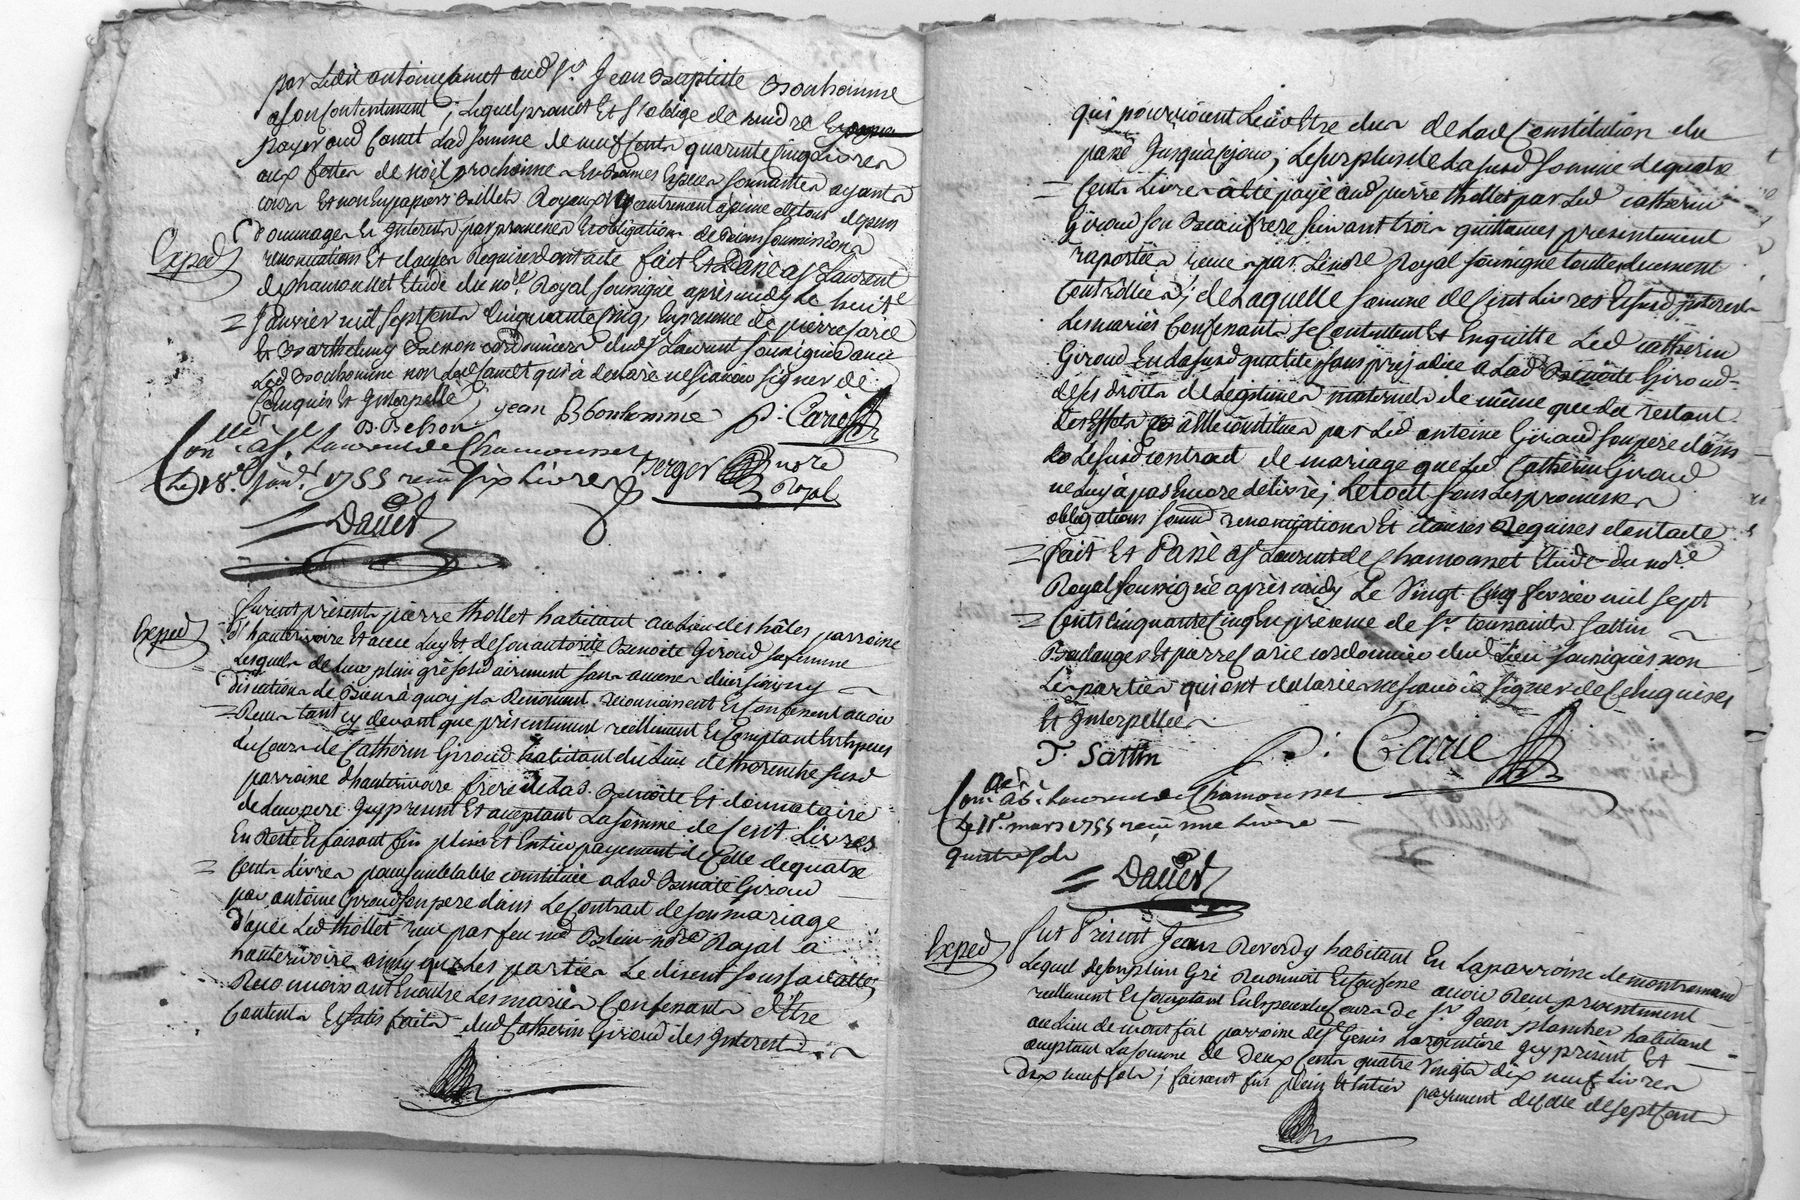 par ledit antoine Camet aud sr. Jean Baptiste Bonhomme
a son Contentement ; lequel promet Et s'oblige de rendre Et
payer aud Camet Lad somme de neuf Cents quarente Cinq Livres
aux fettes de noël prochaines En Espèces sonnantes ayants
cours Et non En papiers Billets Royaux a peine de tous depens
Dommages Et Interets par promesses Et obligations de Biens soumissions
Exped
renonciations Et clauses Requises dont acte fait Et Passé a st Laurent
de chamousset Etude du nore Royal soussigné après midy Le huit
= Janvier mil sept Cents Cinquante Cinq, En presence de pierre Carie
Et Barthelemy Besson cordonniers dud st Laurent soussignés avec
Led Bonhomme non Led Camet qui a declaré ne scavoir signer de
Ce Enquis Et Interpellé
B Besson jean Bonhomme p: Carie
Conllé a st. Laurent de Chamousset
Le 18e. janv. 1755 reçu six Livres
Berger nore
Royal
= Daver
Exped
Furent présents pierre thollet habitant au Lieu des hâles parroisse
d'hauterivoire Et avec Luy Et de son autorité Benoite Giroud sa femme
Lesquels de Leur plein gré sans aucune
discution de Biens à quoy ils Renoncent reconnoissent Et Confessent avoir
= Reçu tant cy devant que présentement réellement Et Comptant En Espèces
du Cours de Catherin Giroud habitant du Lieu de susd
parroisse d'hauterivoire frere de Lad. Benoite Et donnataire
de Leur pere Icy present Et acceptant La somme de Cent Livres
En Reste Et faisant fin pleine Et Entier payement de Celle de quatre
= Cents Livres pour semblable constituée a Lad Benoite Giroud
par antoine Giroud son pere dans Le Contrat de son mariage
d'avec Led thollet reçu par feu me Blein nore Royal a
hauterivoire ainsy que Les parties Le disent sous sa datte,
Reconnoissant Encore Les mariés Confessants d'être
Contents Et satisfaits dud Catherin Giroud des Interest
qui pourroient Leur Etre dus de Lad Constitution du
passé Jusqu'a ce jour ; Le surplus de La susd somme de quatre
= Cents Livres a été payé aud pierre thollet par Led catherin
Giroud son Beaufrere suivant trois quittances presentement
raportées reçues par Le nore Royal soussigné toutes duement
Controllées ; de Laquelle somme de Cent Livres Et susd Interest
Les mariés Confessants se Contentent Et En quitte Led catherin
Giroud En La susd qualité sans préjudice a Lad Benoite Giroud
de ses droits de Legitimes maternels de même que du restant
des Effets a Elle constitués par Led antoine Giroud son pere dans
Le susd contract de mariage que Led Catherin Giroud
ne Luy a pas Encore delivré ; Le tout sous Les promesses
obligations soumd renonciations Et clauses Requises dont acte
= fait Et Passé a st Laurent de Chamousset Etude du nore
Royal soussigné après midy Le Vingt Cinq fevrier mil sept
= Cents Cinquante Cinq En présence de sr toussaints sattin
Boulanger Et pierre Carie cordonnier dud Lieu soussignés non
Les parties qui ont declaré ne scavoir signer de Ce Enquises
Et Interpellées
T. Sattin P: Carie
Conllé a st. Laurent de Chamousset
Le 11e. mars 1755 reçu une Livre
quatre sols
= Daver
Exped
Fut Présent Jean Reverdy habitant En La parroisse de montromand
Lequel de son plein Gré Reconnoit Et Confesse avoir Reçu presentement
réellement Et Comptant En Especes du Cours de sr Jean plancher habitant
au Lieu de montfol parroisse de st Genis Largentiere Icy présent Et
acceptant La somme de Deux Cents quatre Vingts dix neuf Livres
dix neuf sols ; faisant fin plein Et Entier payement de Celle de sept Cent